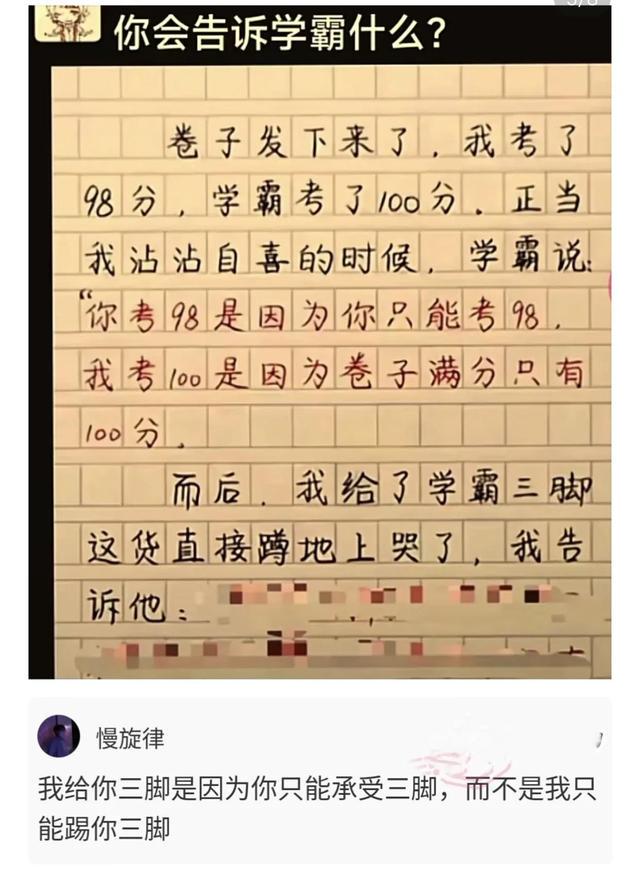 你会告诉学霸什么?
卷子发下来了，我考了
98分，学霸考了100分。正当
我沾沾自喜的时候，学霸说:
“你考98是因为你只能考98，
我考100是因为卷子满分只有
100分。
而后，我给了学霸三脚
这货直接蹲地上哭了，我告
诉他:
慢旋律
我给你三脚是因为你只能承受三脚，而不是我只
能踢你三脚